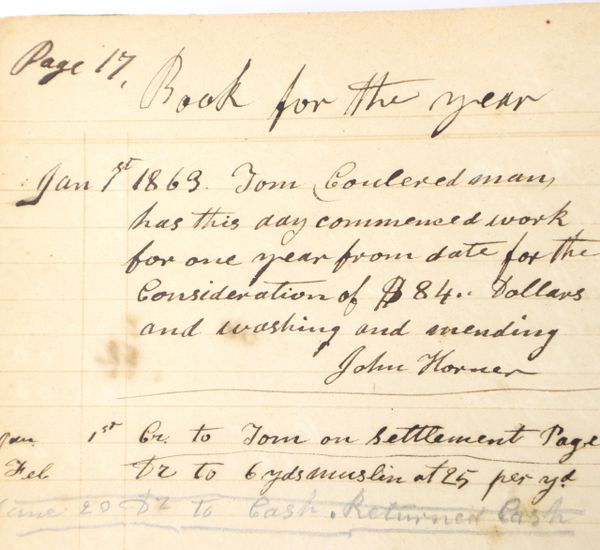 Page 17,
Book for the year
Jan 1st 1863. Tom Coulered man,
has this day commenced work
for one year from date for the
Consideration of $84.. Dollars
and washing and mending
John Horner
Jan 1st Cr. to Tom on settlement Page
Feb Dr to 6 yds muslin at 25 per yd
June 20 Dr to Cash. Returned Cash